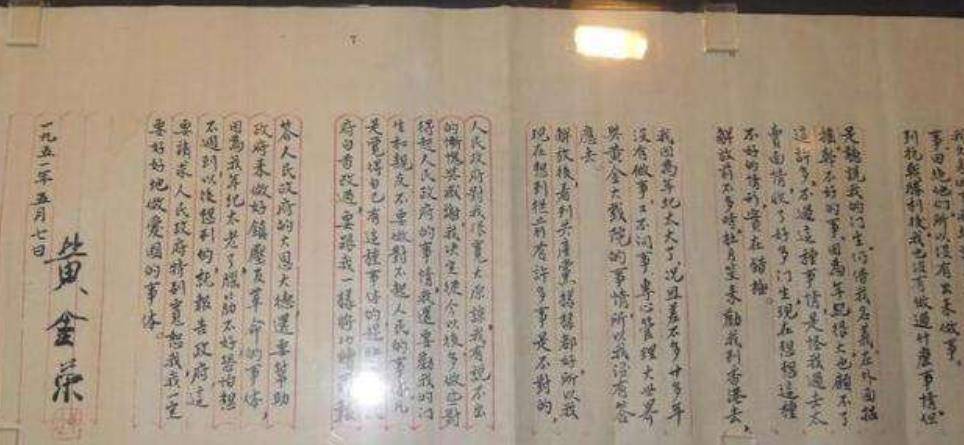 事回絕他們所以沒有出來做事。
到抗戰勝利後我也沒有做過什麼事情但
是聽說我的门生仍借我名義在外面招
搖幹不好的事。因為年紀大也顧不了
這許多。不過這種事情是怪我過去太
賣面情收了好多门生現在想想這種
不好的情形實在錯極。
解放前不多時杜月笙來勸我到香港去，
我因為年紀太大了況且差不多廿多年
沒有做事又不问事專心管理大世界
與黄金大戲院的事情所以我沒有答
應去
解放後看到共產黨樣樣都好所以我
現在想到從前有許多事是不對的，
人民政府對我很寬大原諒我有說不出
的慚愧與感謝我決定從今以後多做些對
得起人民政府的事情我還要勸我的门
生和親友不要做對不起人民的事凡
是覺得自己有這種事情的趕
府自首改過，要跟我一樣將功贖報
答人民政府的大恩大德還要幫助
政府來做好鎮壓反革命的事情，
因為我年紀太老了腦筋不好恐怕想
不週到以後想到的就報告政府這
要請求人民政府特别寬恕我我一定
要好好地做愛國的事体。
黄金荣
一九五一年五月七日